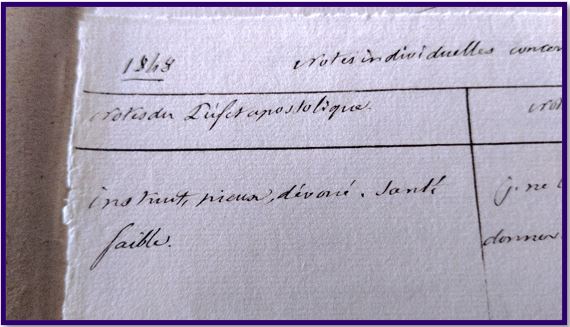 1848
Notes individuelles concer
Notes du Préfet apostolique.
not
instruit, pieux, dévoué. Santé
j. ne
faible.
donner